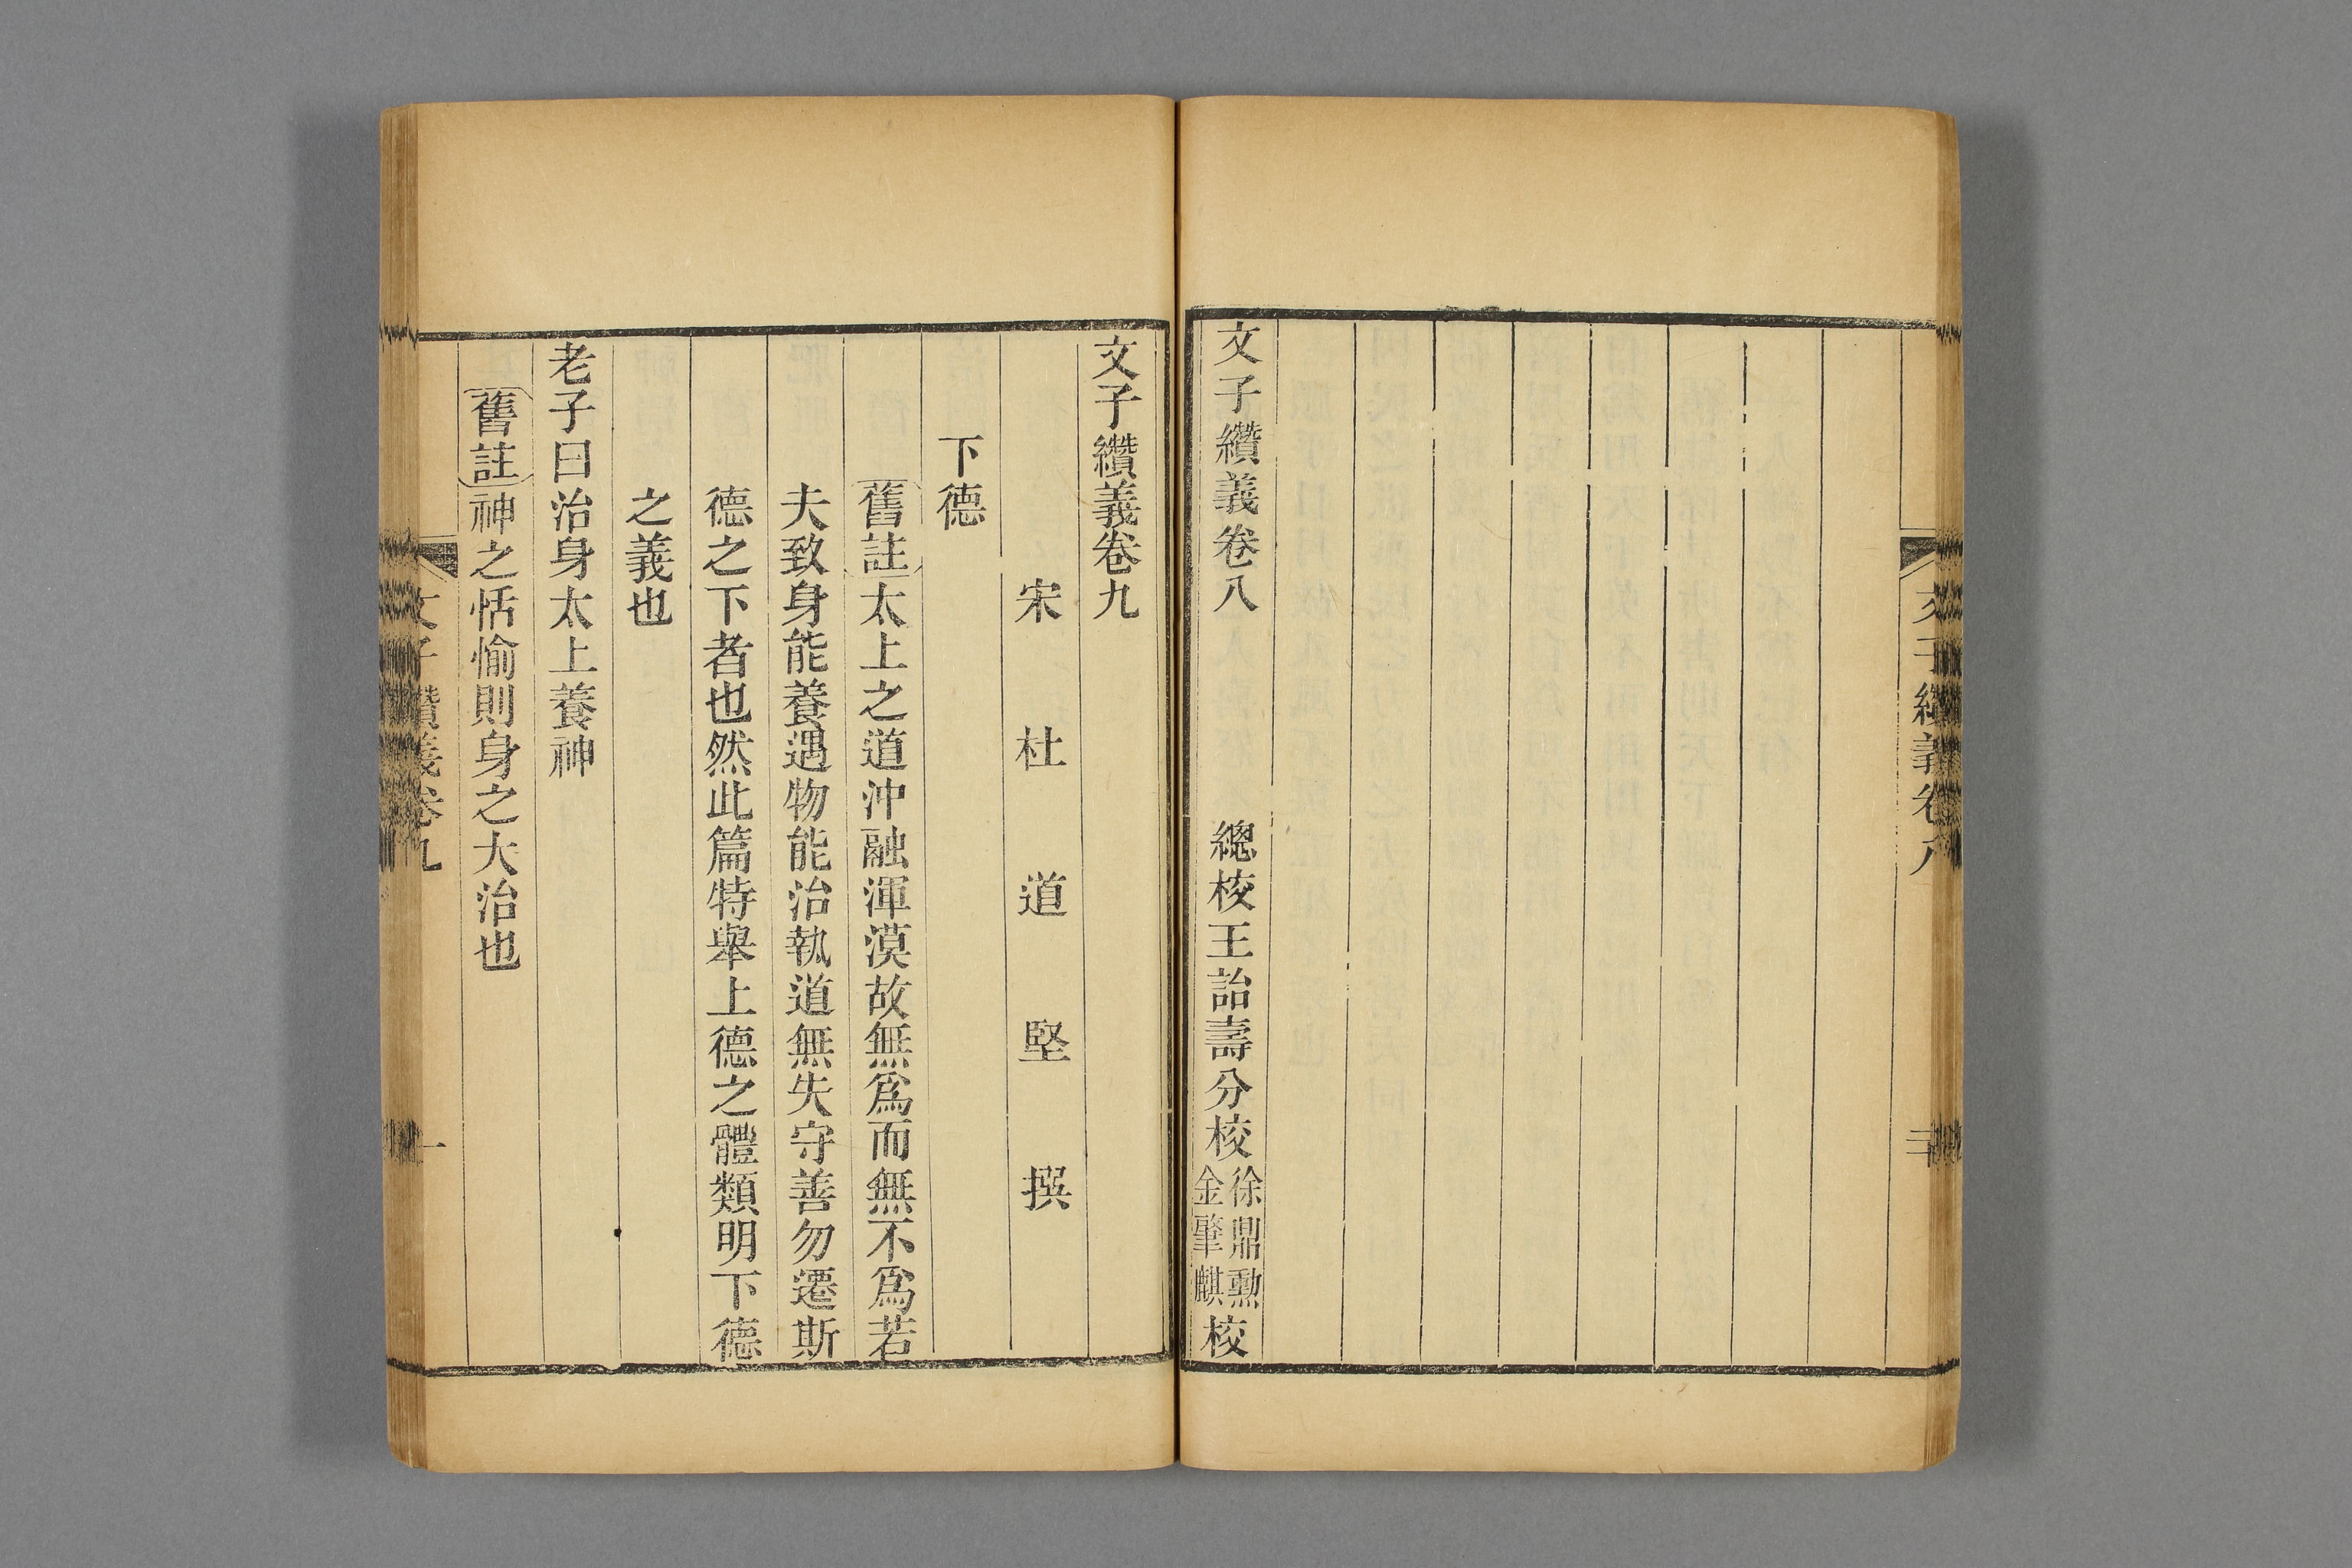 文子纘義卷八
文子纘義卷八 總校王詒壽分校徐鼎勳金肇麒校
文子纘義卷九
宋杜道堅撰
下德
舊註太上之道沖融渾漠故無爲而無不爲若
夫致身能養遇物能治執道無失守善勿遷斯
德之下者也然此篇特舉上德之體類明下德
之義也
老子曰治身太上養神
舊註神之恬愉則身之大治也
文子纘義卷九
一